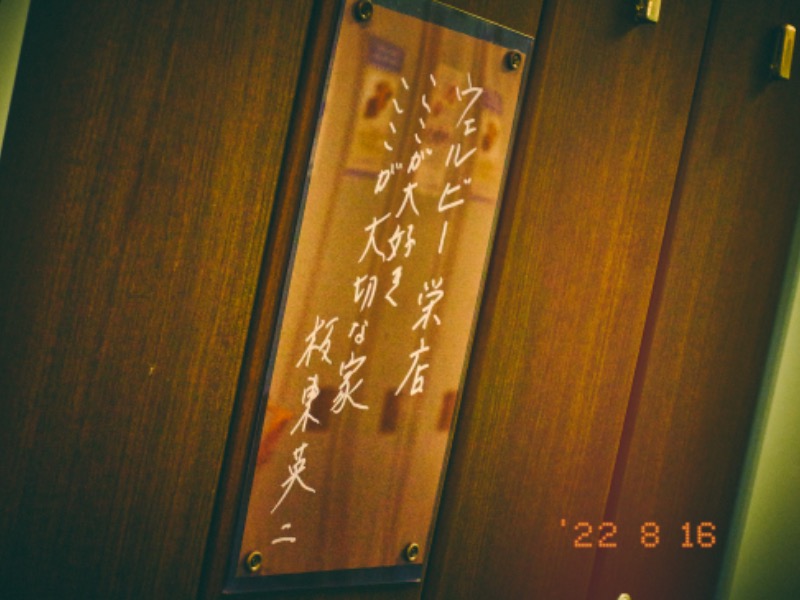 ウェルビー栄店
ここが大好き
ここが大切な家
板東英二
'22 8 16